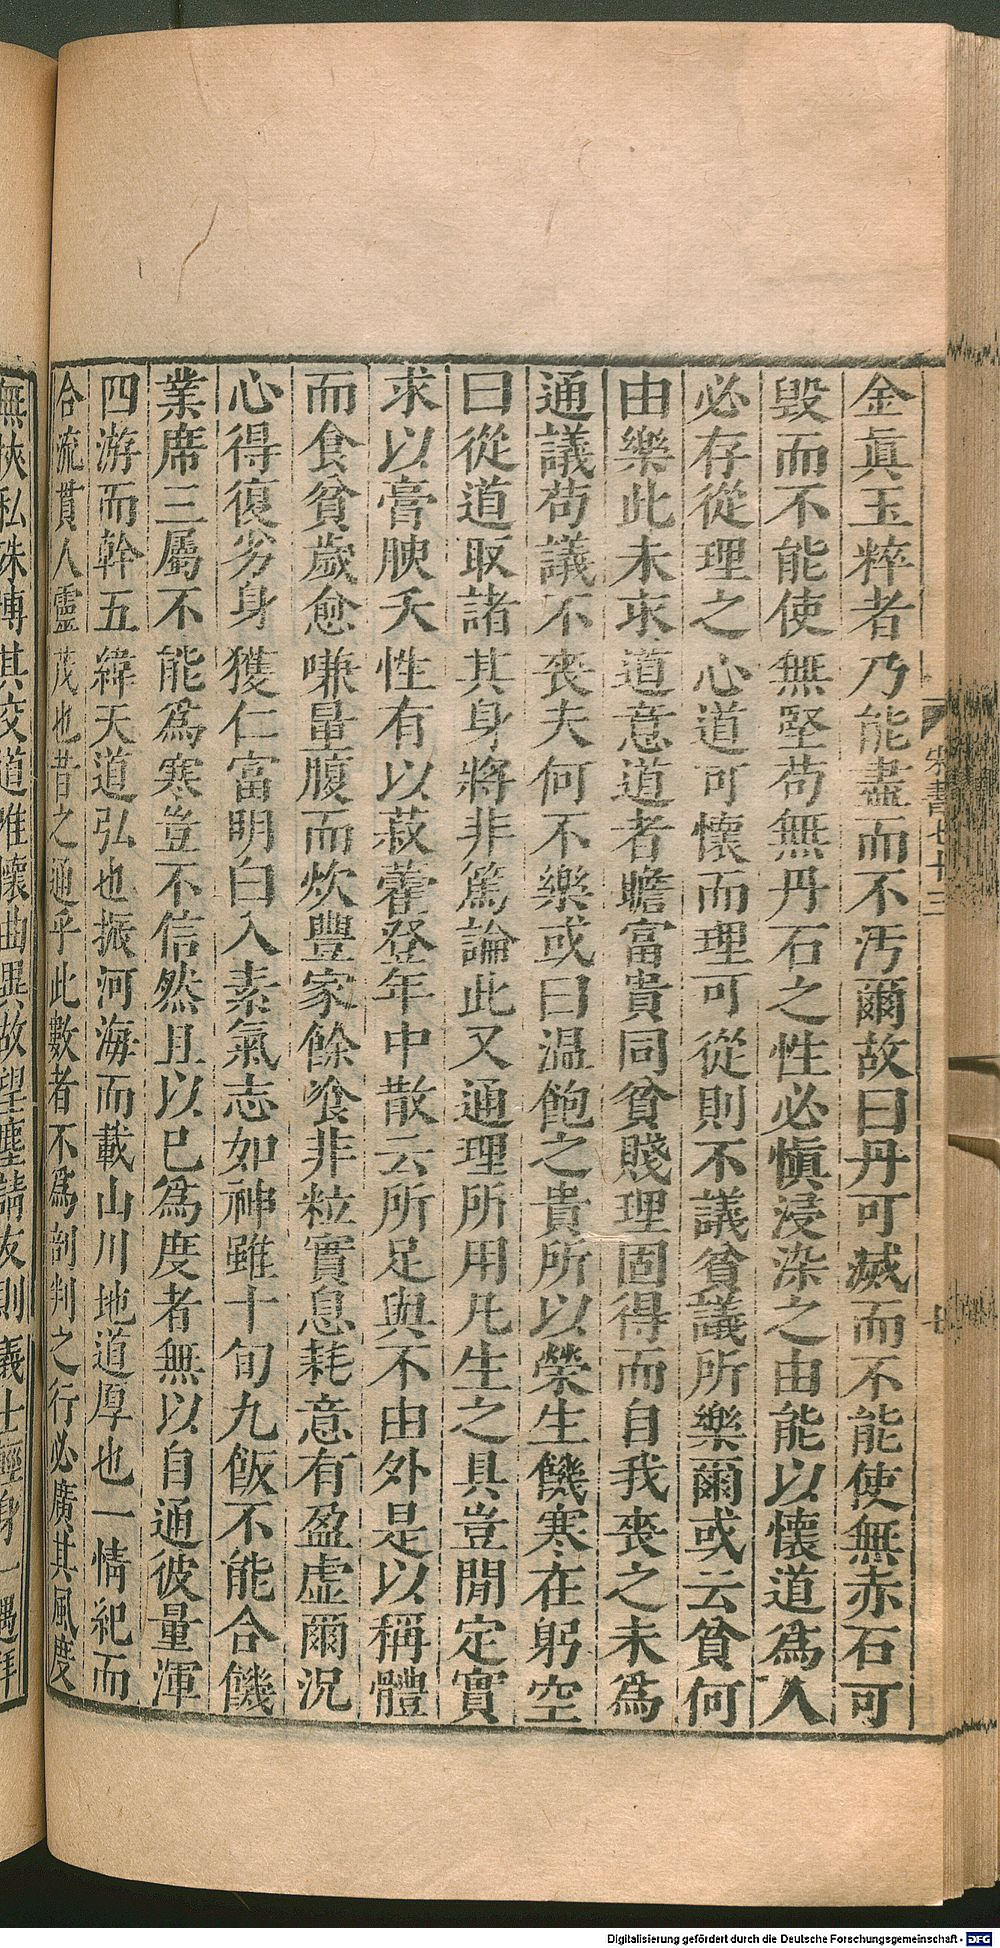 金眞玉粹者乃能盡而不汚爾故曰丹可滅而不能使無赤石可
毀而不能使無堅苟無丹石之性必慎浸染之由能以懷道爲人
必存從理之心道可懷而理可從則不議貧議所樂爾或云貧何
由樂此未求道意道者瞻富貴同貧賤理固得而自我喪之未爲
通議苟議不喪夫何不樂或曰温飽之貴所以榮生饑寒在躬空
曰從道取諸其身將非篤論此又通理所用凡生之具豈閒定實
求以膏腴夭性有以菽藿登年中散云所足與不由外是以稱體
而食貧歲愈嗛量腹而炊豐家餘飡非粒實息耗意有盈虚爾況
心得復劣身獲仁富明白入素氣志如神雖十旬九飯不能合饑
業席三屬不能爲寒豈不信然且以已爲度者無以自通彼量渾
四游而幹五緯天道弘也振河海而載山川地道厚也一情紀而
合流貫人靈茂也昔之通乎此數者不爲剖判之行必廣其風度
無挾私殊博其交道唯懷曲異故望塵請友則義士輕身一遇拜
宋書七十三
七
Digitalisierung gefördert durch die Deutsche Forschungsgemeinschaft - DFG